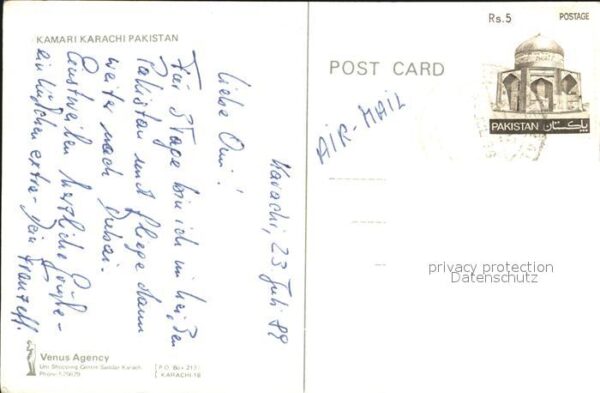 KAMARI KARACHI PAKISTAN
Karachi, 23. Juli 89
Liebe Omi!
Für 3 Tage bin ich im heißen
Pakistan und fliege dann
weiter nach Dubai.
Einstweilen herzliche Grüße-
ein bißchen extra- Dein
Venus Agency
Uni Shopping Centre Saddar Karachi
Phone: 526629
P.O. Box 213
KARACHI-18
POST CARD
AIR-MAIL
Rs. 5 POSTAGE
PAKISTAN پاکستان
privacy protection
Datenschutz